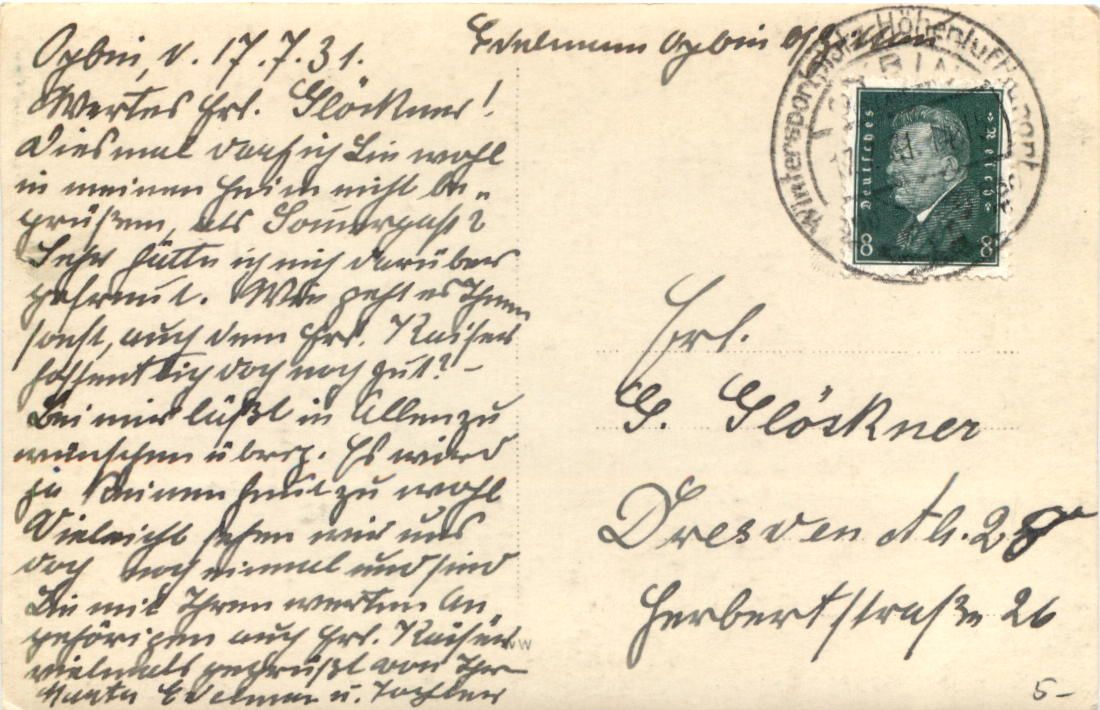 Edelmann Oybin
Oybin, d. 17.7.31.
Wertes Frl. Glöckner!
Diesmal darf ich Sie wohl
in meinem Heim nicht be-
grüßen, als Sommergast?
Sehr hätte ich mich darüber
gefreut. Wie geht es Ihnen
sonst, auch dem Frl. Kaiser
hoffentlich doch noch gut? –
Bei mir läßt in Allen zu
wünschen übrig. Es wird
ja keinen heut zu wohl
Vieleicht sehen wir uns
doch noch einmal und sind
Sie mit Ihren werten An-
gehörigen auch Frl. Kaiser
vielmals gegrüßt von Ihr
Edelmann u. Tochter
Wintersportplatz Höhenluftkurort
OYBIN
Deutsches Reich
8 8
Frl.
G. Glöckner
Dresden Ah. 28
Herbertstraße 26
5-